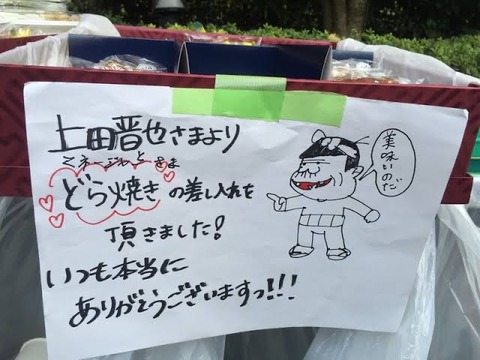 上田晋也さまより
マネージャーと皆さま
どら焼きの差し入れを
頂きました!
いつも本当に
ありがとうございますっ!!!
美味いのだ